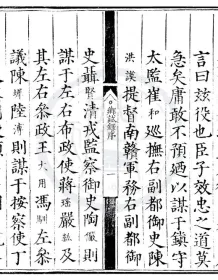 言曰玆役也臣子效忠之道莫
急矣庸敢不預迺以謀于鎮守
太監崔和廵撫右副都御史陳
洪謨提督南贛軍務右副都御
史聶賢清戎監察御史陶儼則
謀于左右布政使蔣瑶嚴紘及
其左右叅政王大用馮馴左叅
議陳墀陸溥則謀于按察使丁